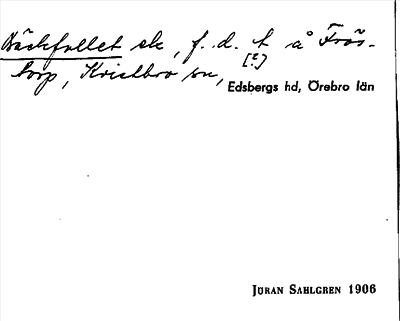 Bäckfallet sk, f. d. t å Frös-
torp, Kvistbro sn,
[?]
Edsbergs hd, Örebro län
JÖRAN SAHLGREN 1906